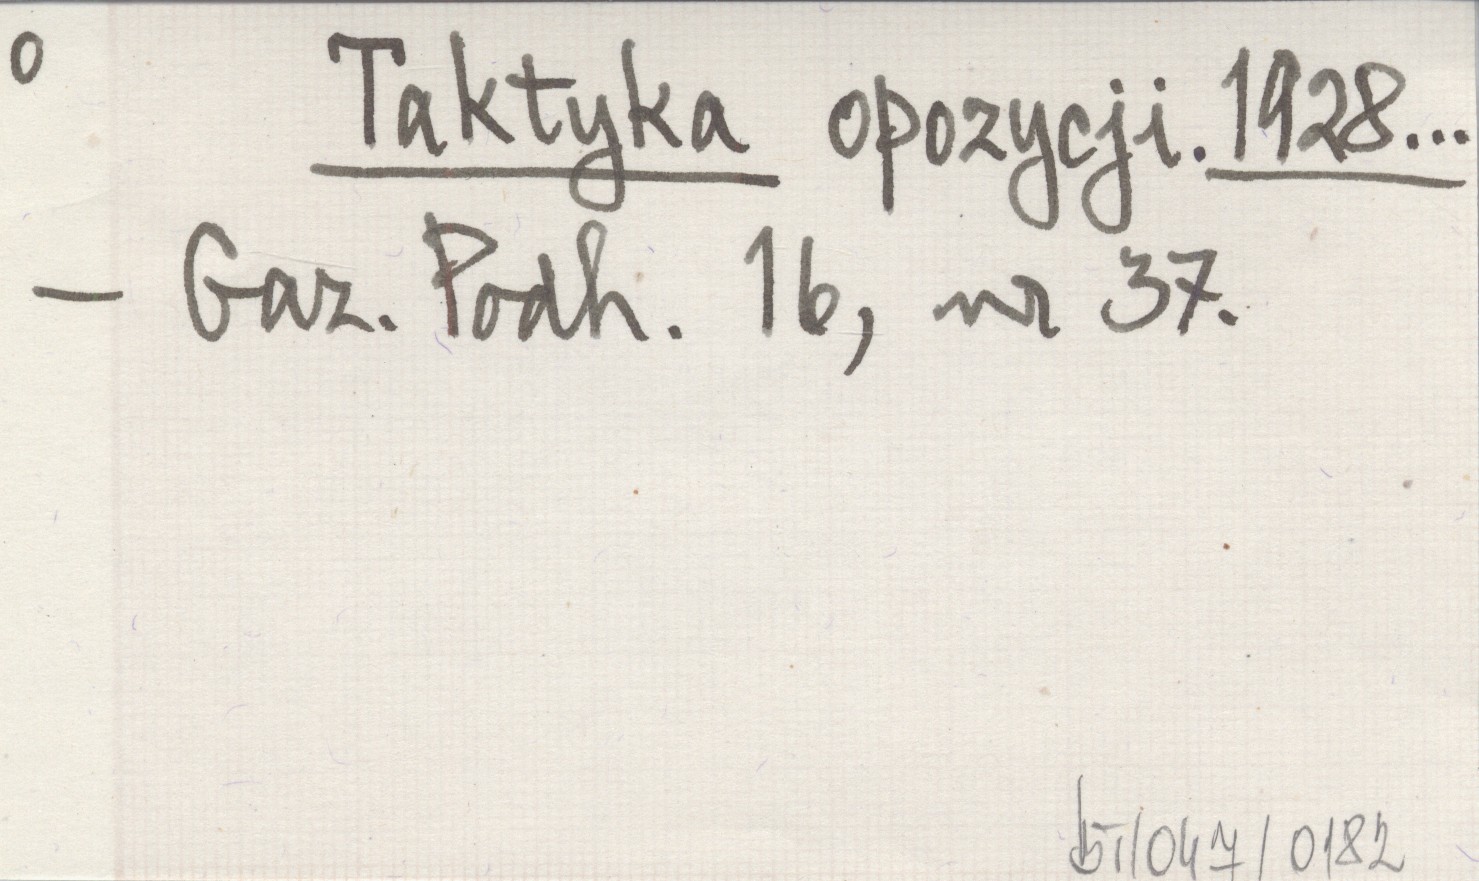 o Taktyka opozycji. 1928...
— Gaz. Podh. 16, nr 37.
/047/0182